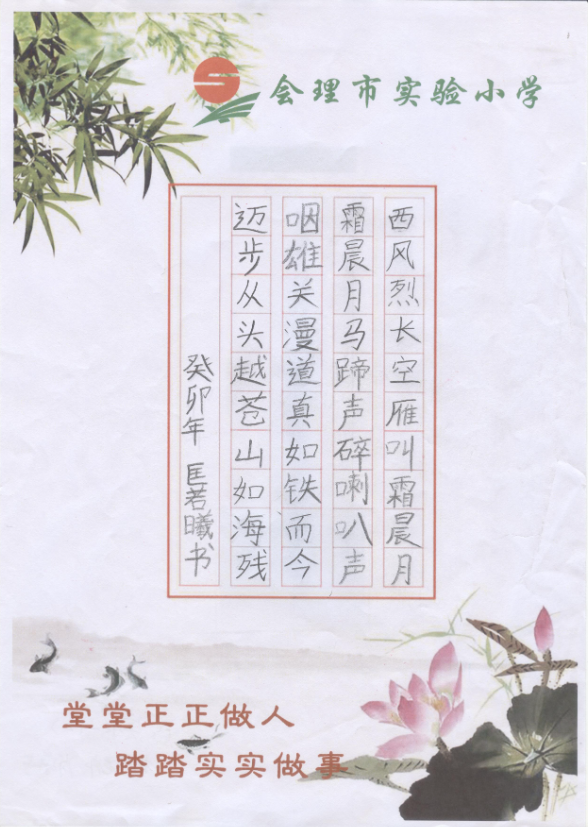 会理市实验小学
西风烈长空雁叫霜晨月
霜晨月马蹄声碎喇叭声
咽雄关漫道真如铁而今
迈步从头越苍山如海残
癸卯年 匡若曦书
堂堂正正做人
踏踏实实做事